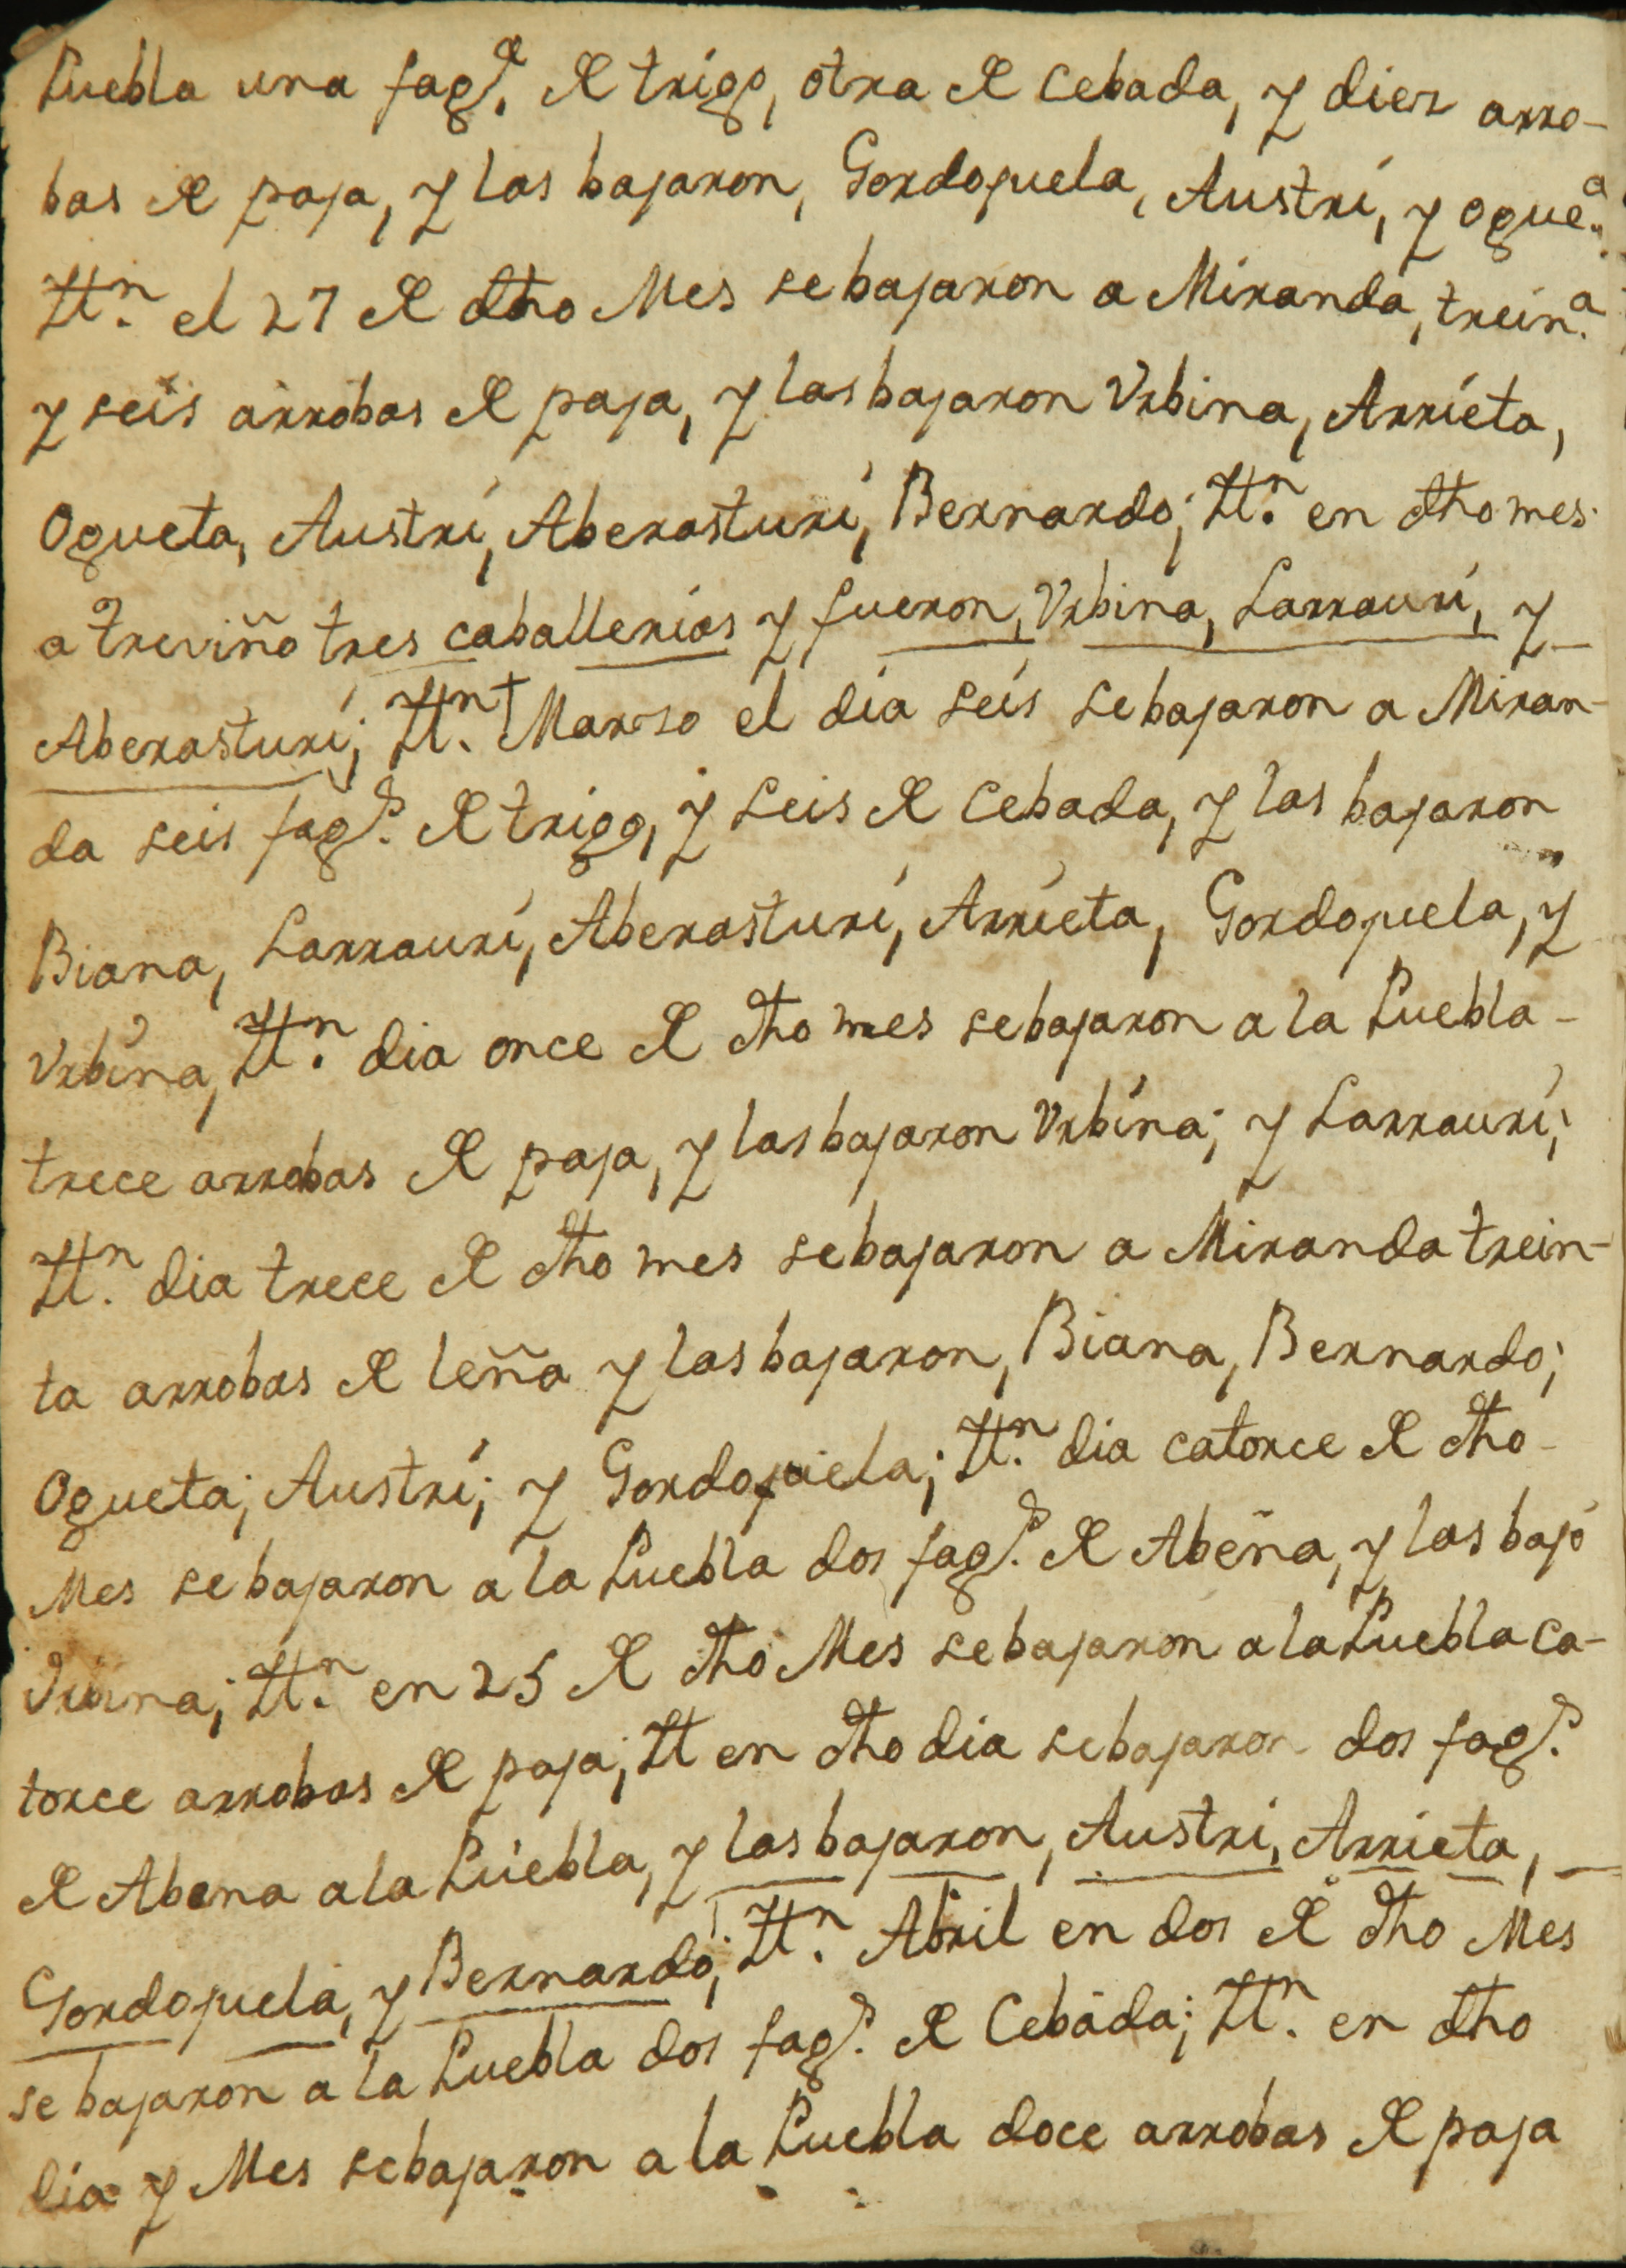 Puebla una fag.ª de trigo, otra de Cebada, y diez arro-
bas de paja, y las bajaron, Gordojuela, Austri, y ogue.ª
Ittn. el 27 de dho Mes se bajaron a Miranda, trein.ª
y seis arrobas de paja, y las bajaron Vrbina, Arrieta,
Ogueta, Austri, Aberasturi, Bernardo; Ittn. en dho mes
a treviño tres caballerias y fueron, Vrbina, Larrauri, y
Aberasturi; Ittn. Marzo el dia seis se bajaron a Miran-
da seis fag.s de trigo, y seis de Cebada, y las bajaron
Biana, Larrauri, Aberasturi, Arrieta, Gordojuela, y
Vrbina, Ittn. dia once de dho mes se bajaron a la Puebla -
trece arrobas de paja, y las bajaron Vrbina; y Larrauri;
Ittn. dia trece de dho mes se bajaron a Miranda trein-
ta arrobas de leña y las bajaron, Biana, Bernardo;
Ogueta; Austri; y Gordojuela; Ittn. dia catorce de dho
Mes se bajaron a la Puebla dos fag.s de Abena, y las bajó
Vrbina; Ittn. en 25 de dho Mes se bajaron a la Puebla ca-
torce arrobas de paja; Itt en dho dia se bajaron dos fag.s
de Abena a la Puebla, y las bajaron, Austri, Arrieta, -
Gordojuela, y Bernardo; Ittn. Abril en dos de dho Mes
se bajaron a la Puebla dos fag.s de Cebada; Ittn. en dho
dia y Mes se bajaron a la Puebla doce arrobas de paja